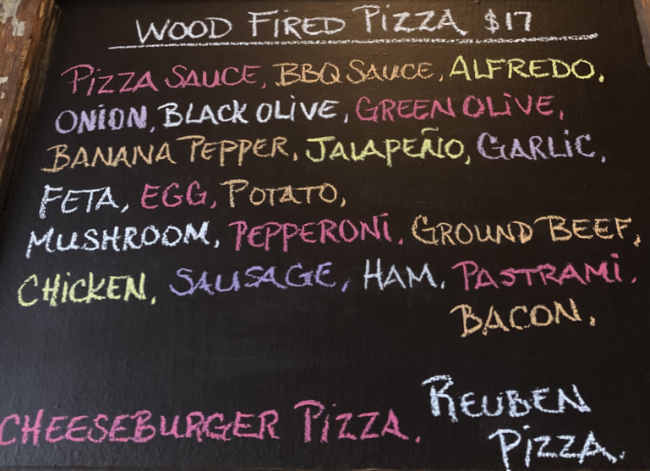 WOOD FIRED PIZZA $17
PIZZA SAUCE, BBQ SAUCE, ALFREDO,
ONION, BLACK OLIVE, GREEN OLIVE,
BANANA PEPPER, JALAPEÑO, GARLIC,
FETA, EGG, POTATO,
MUSHROOM, PEPPERONI, GROUND BEEF,
CHICKEN, SAUSAGE, HAM, PASTRAMI,
BACON,
CHEESEBURGER PIZZA.
REUBEN
PIZZA.